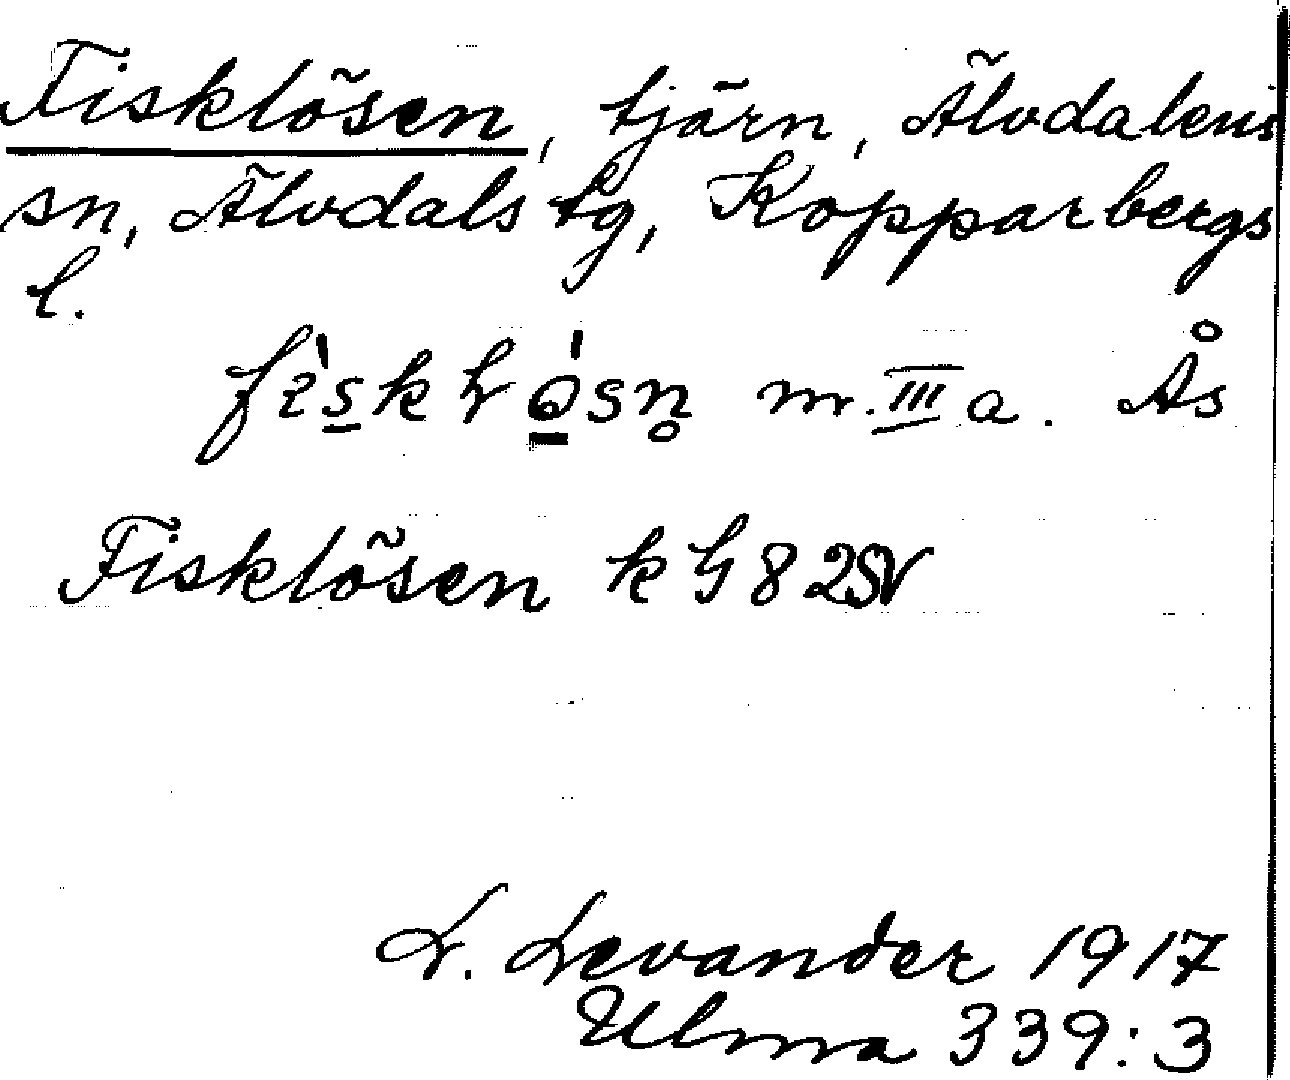 Fisklösen, tjärn, Älvdalens
sn, Älvdals tg, Kopparbergs
l.
m. III a. Ås
Fisklösen k G 8 2SV
L. Levander 1917
Ulma 339:3